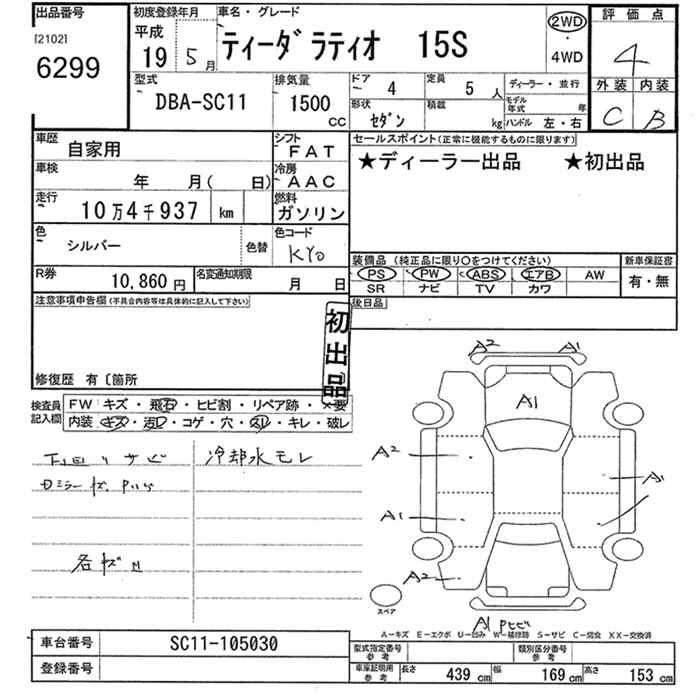 出品番号
[2102]
6299
初度登録年月
平成
19 5月
車名・グレード
ティーダ ラティオ 15S
2WD
・
4WD
評価点
4
外装 内装
C B
型式
DBA-SC11
排気量
1500
CC
ドア 4
定員 5 人
ディーラー・並行
形状 セダン
積載 kg
モデル年式 年
ハンドル 左・右
車歴 自家用
シフト FAT
車検 年 月( 日)
冷房 AAC
走行 10万4千937 km
燃料 ガソリン
色 シルバー 色替
色コード KY0
R券 10,860円
名変通知期限 月 日
セールスポイント(正常に機能するものに限ります)
★ディーラー出品 ★初出品
装備品(純正品に限り○をつけてください)
新車保証書
PS PW ABS エアB AW
SR ナビ TV カワ
有・無
後日品
注意事項申告欄(不具合内容等は具体的に記入して下さい)
初出品
修復歴 有〔箇所 〕
検査員記入欄
FW キズ・飛石・ヒビ割・リペア跡・×要
内装 キズ・汚レ・コゲ・穴・スレ・キレ・破レ
下回りサビ
冷却水モレ
各キズ凹
A2 A1
A1
A2
A1
A1
A2
A1 PヒビE
スペア
A-キズ E-エクボ U-凹み W-補修跡 S-サビ C-腐食 XX-交換済
車台番号 SC11-105030
登録番号
型式指定番号 参考
類別区分番号 参考
車庫証明用 参考
長さ 439 cm
幅 169 cm
高さ 153 cm